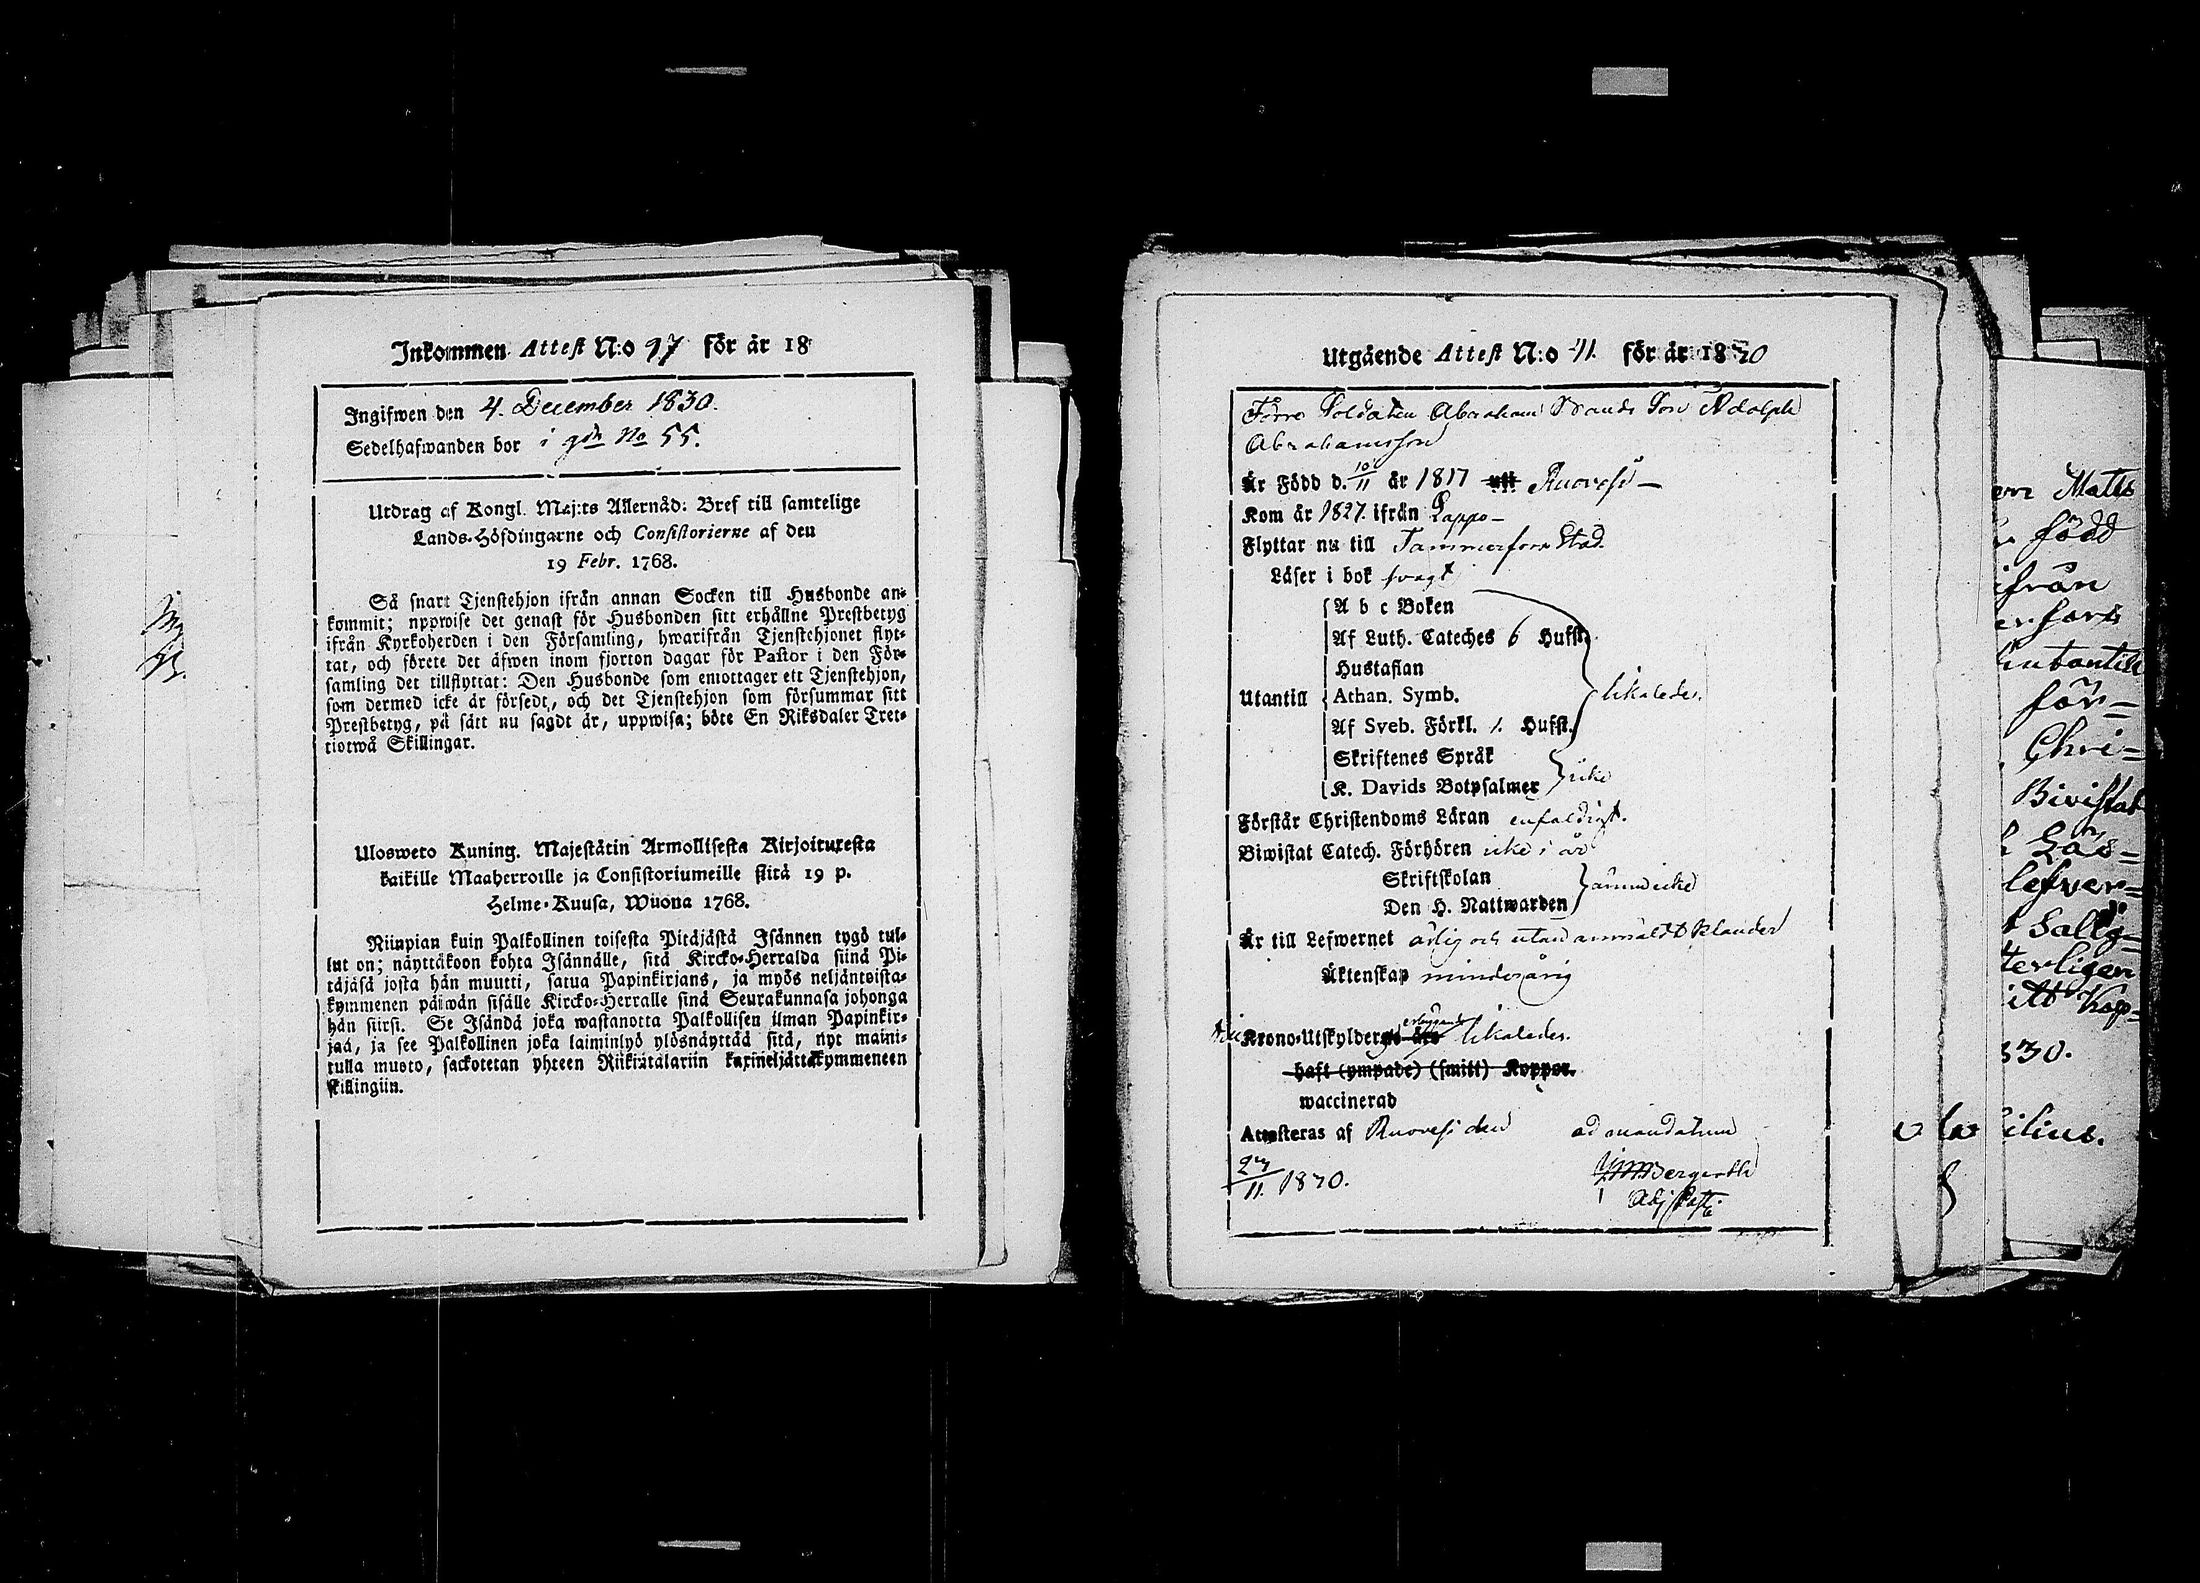 Inkommen Attest N:o 97 för år 18
Ingifwen den 4. December 1830.
Sedelhafwanden bor i gdn No 55.
Utdrag af Kongl. Maj:ts Allernåd: Bref till samtelige
Lands-Höfdingarne och Consistorierne af den
19 Febr. 1768.
Så snart Tjenstehjon ifrån annan Socken till Husbonde an-
kommit; uppwise det genast för Husbonden sitt erhållne Prestbetyg
ifrån Kyrkoherden i den Församling, hwarifrån Tjenstehjonet flyt-
tat, och förete det äfwen inom fjorton dagar för Pastor i den För-
samling det tillflyttat: Den Husbonde som emottager ett Tjenstehjon,
som dermed icke är försedt, och det Tjenstehjon som försummar sitt
Prestbetyg, på sätt nu sagdt är, uppwisa; böte En Riksdaler Tret-
tiotwå Skillingar.
Ulosweto Kuning. Majestätin Armollisesta Kirjoituxesta
kaikille Maaherroille ja Consistoriumeille siitä 19 p.
Helme-Kuusa, Wuona 1768.
Niinpian kuin Palkollinen toisesta Pitäjästä Isännen tygö tul-
lut on; näyttäkoon kohta Isännälle, sitä Kircko-Herralda siinä Pi-
täjäsä josta hän muutti, saatua Papinkirjans, ja myös neljäntoista-
kymmenen päiwän sisälle Kircko-Herralle sinä Seurakunnasa johonga
hän siirsi. Se Isändä joka wastanotta Palkollisen ilman Papinkir-
jaa, ja see Palkollinen joka laiminlyö ylösnäyttää sitä, nyt maini-
tulla muoto, sackotetan yhteen Riikintalariin kaxineljättäkymmeneen
skillingiin.
Utgående Attest N:o 41. för år 1830
Förre Soldaten Abraham Brands Son Adolph
Abrahamsson
Är Född d. 10/11 år 1817 uti Ruovesi
Kom år 1827. ifrån Lappo
Flyttar nu till Tammerfors Stad.
Läser i bok svagt
A b c Boken
Af Luth. Cateches 6 Hufst.
Hustaflan
Utantill Athan. Symb. likaledes.
Af Sveb. Förkl. 1. Hufst.
Skriftenes Språk
K. Davids Botpsalmer icke
Förstår Christendoms Läran enfaldigt.
Biwistat Catech. Förhören icke i år
Skriftskolan
Den H. Nattwarden ännu icke
Är till Lefwernet ärlig och utan anmäldt klander
Äktenskap minderårig
Krono-Utskylder likaledes.
haft (ympade) (smitt) Koppor.
waccinerad
Attesteras af Ruovesi den ad mandatum
27/11. 1830. Bergroth
Adj Past.
Matts
född
ifrån
för=
Chri=
Bivistat
Läs=
lefver=
Salig=
terligen
itt Kop=